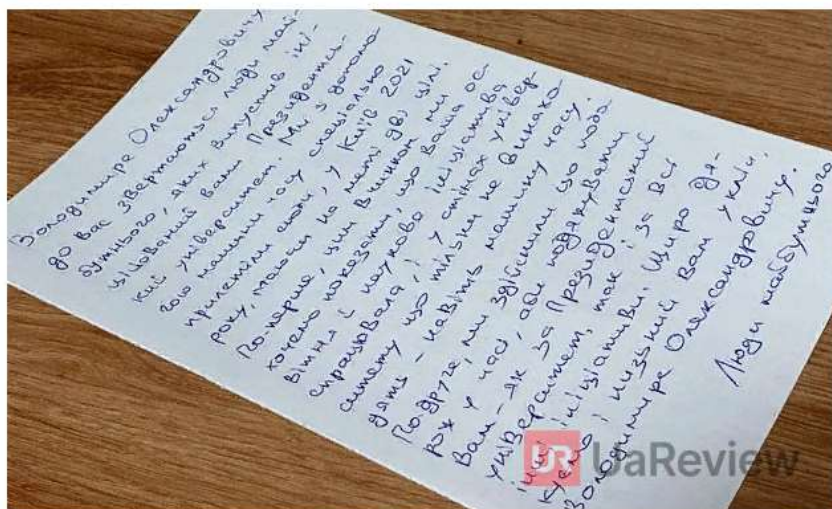 Володимире Олександровичу
до вас звертаються люди май-
бутнього, яких випустив іні-
ційований вами Президентсь-
кий університет. Ми з допомо-
гою машини часу спеціально
прилетіли сюди, у Київ 2021
року, маючи на меті дві цілі.
По перше, цим вчинком ми
хочемо показати, що ваша ос-
вітня й наукова ініціатива
спрацювала, і у стінах універ-
ситету що тільки не винахо-
дять - навіть машину часу.
По друге, ми здійснили цю подо-
рож у часі, аби подякувати
Вам - як за Президентський
університет, так і за всі
інші ініціативи. Щиро дя-
куємо і низький Вам уклін,
Володимире Олександровичу.
Люди майбутнього
UR UaReview